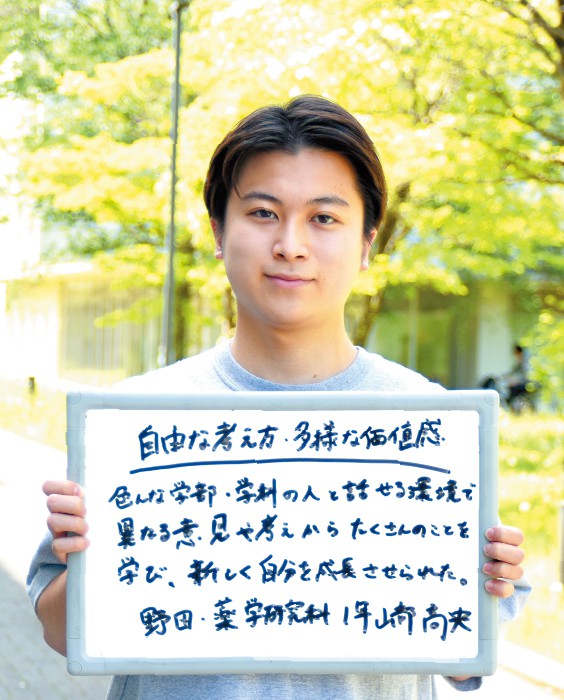 自由な考え方・多様な価値感
色んな学部・学科の人と話せる環境で
異なる意見や考えからたくさんのことを
学び、新しく自分を成長させられた。
野田・薬学研究科 1年 山崎高央